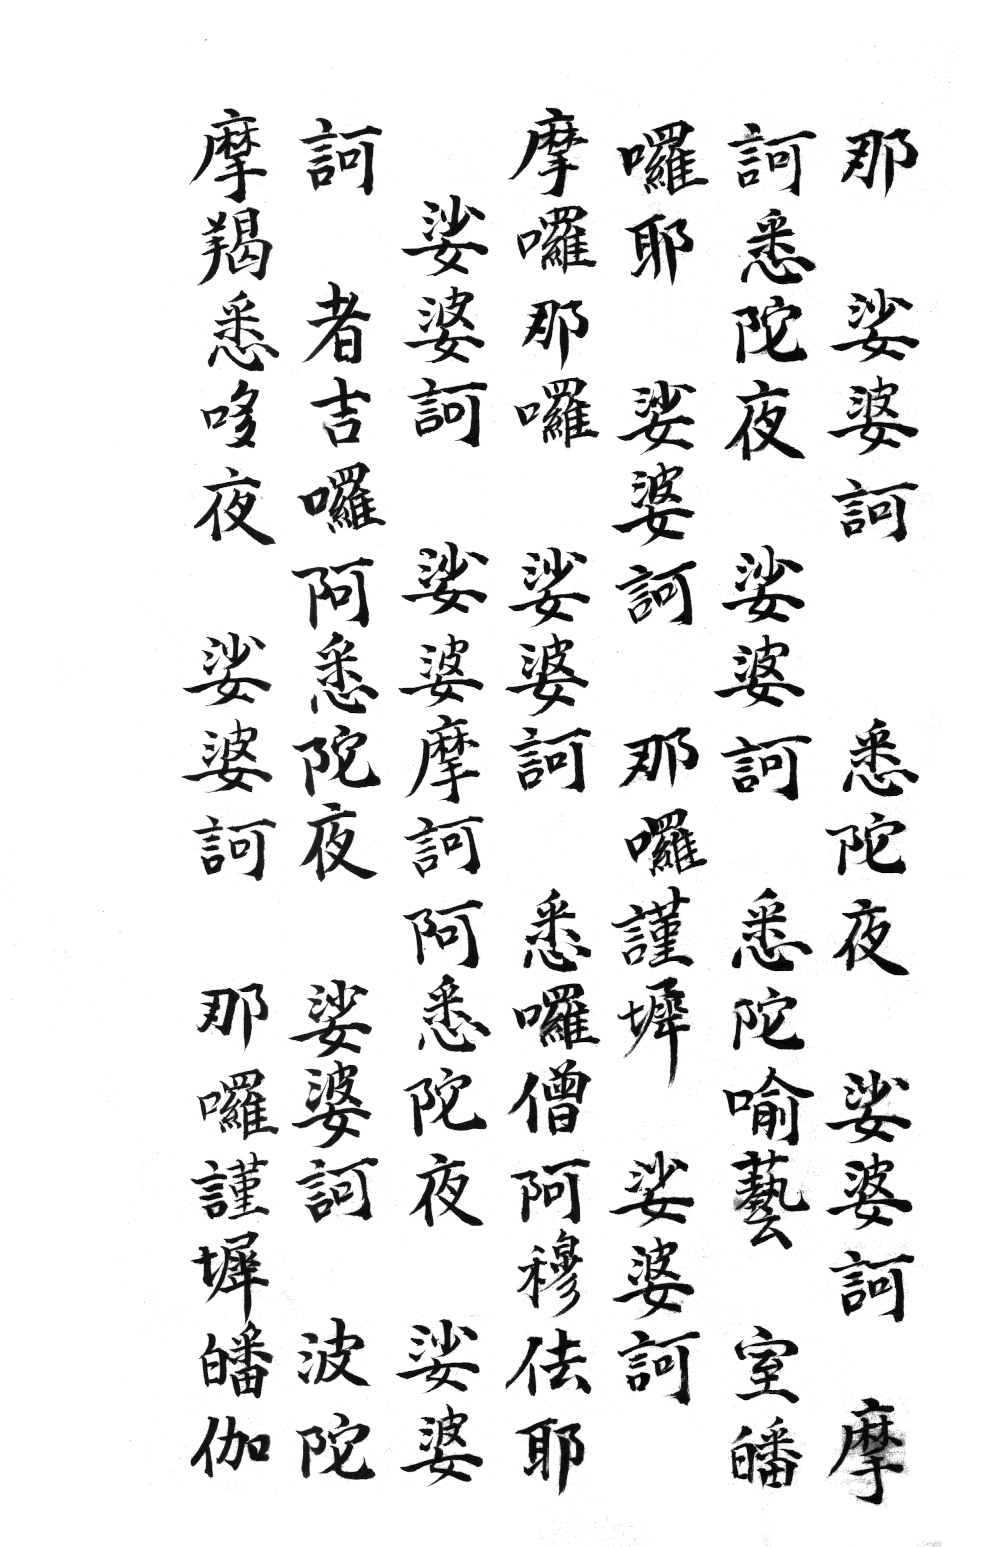 那 娑婆訶 悉陀夜 娑婆訶 摩
訶悉陀夜 娑婆訶 悉陀喻藝 室皤
囉耶 娑婆訶 那囉謹墀 娑婆訶
摩囉那囉 娑婆訶 悉囉僧阿穆佉耶
娑婆訶 娑婆摩訶阿悉陀夜 娑婆
訶 者吉囉阿悉陀夜 娑婆訶 波陀
摩羯悉哆夜 娑婆訶 那囉謹墀皤伽